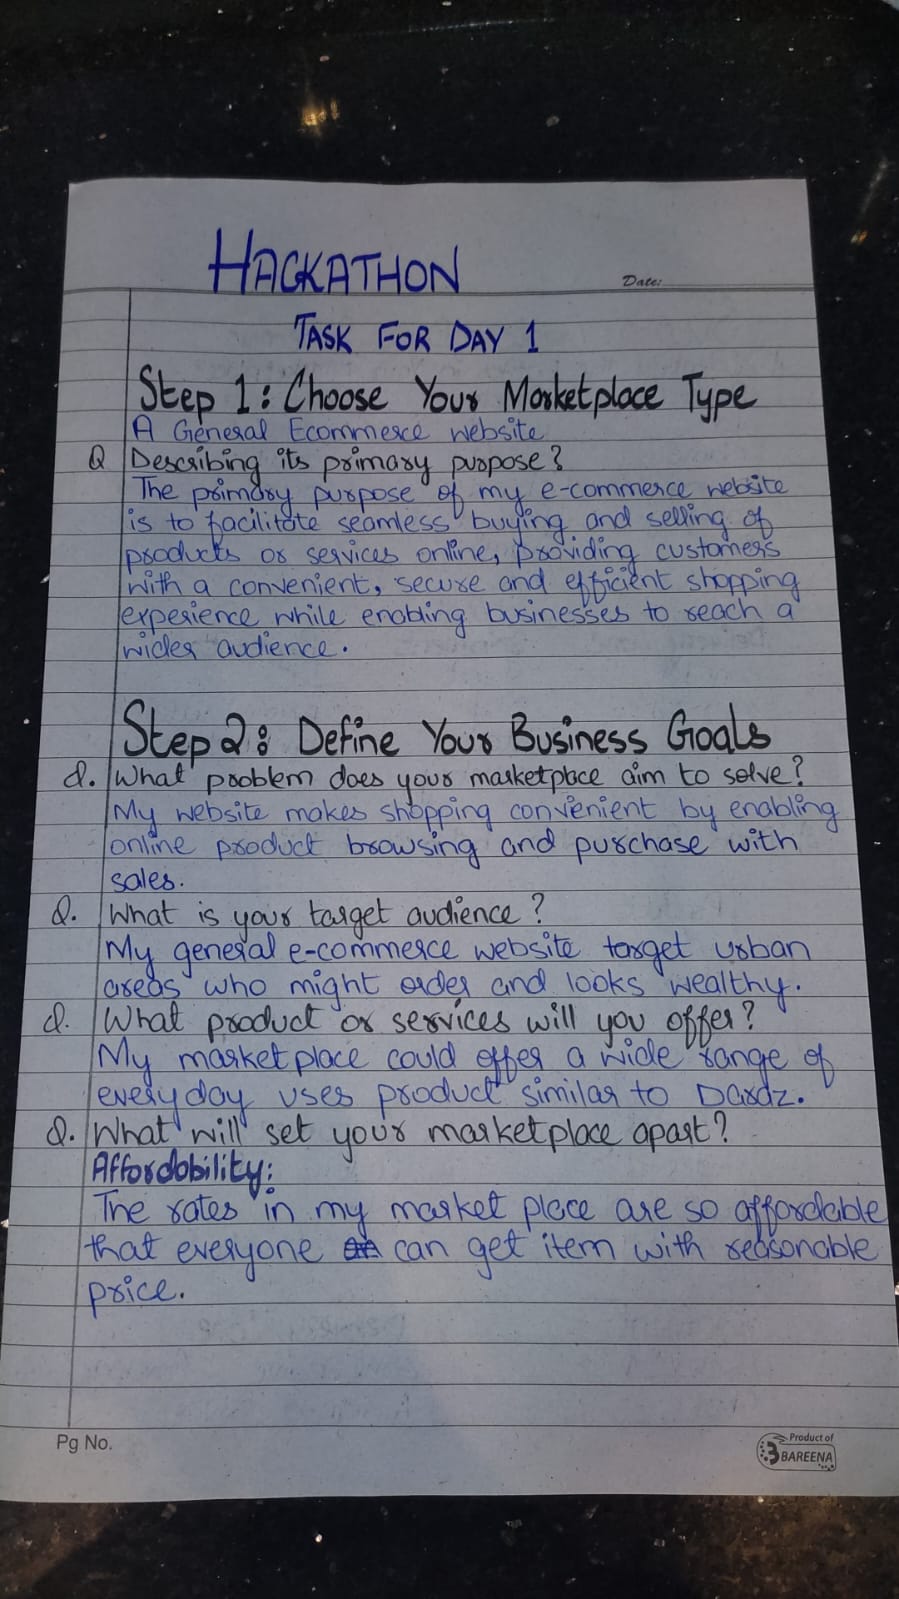 HACKATHON
Date:
TASK FOR DAY 1
Step 1: Choose Your Marketplace Type
A General Ecommerce website
Q Describing its primary purpose?
The primary purpose of my e-commerce website
is to facilitate seamless buying and selling of
products or services online, providing customers
with a convenient, secure and efficient shopping
experience while enabling businesses to reach a
wider audience.
Step 2: Define Your Business Goals
Q. What problem does your marketplace aim to solve?
My website makes shopping convenient by enabling
online product browsing and purchase with
sales.
Q. What is your target audience?
My general e-commerce website target urban
areas who might order and looks wealthy.
Q. What product or services will you offer?
My marketplace could offer a wide range of
everyday uses product similar to Dardz.
Q. What will set your marketplace apart?
Affordability:
The rates in my market place are so affordable
that everyone can get item with reasonable
price.
Pg No.
Product of
BAREENA